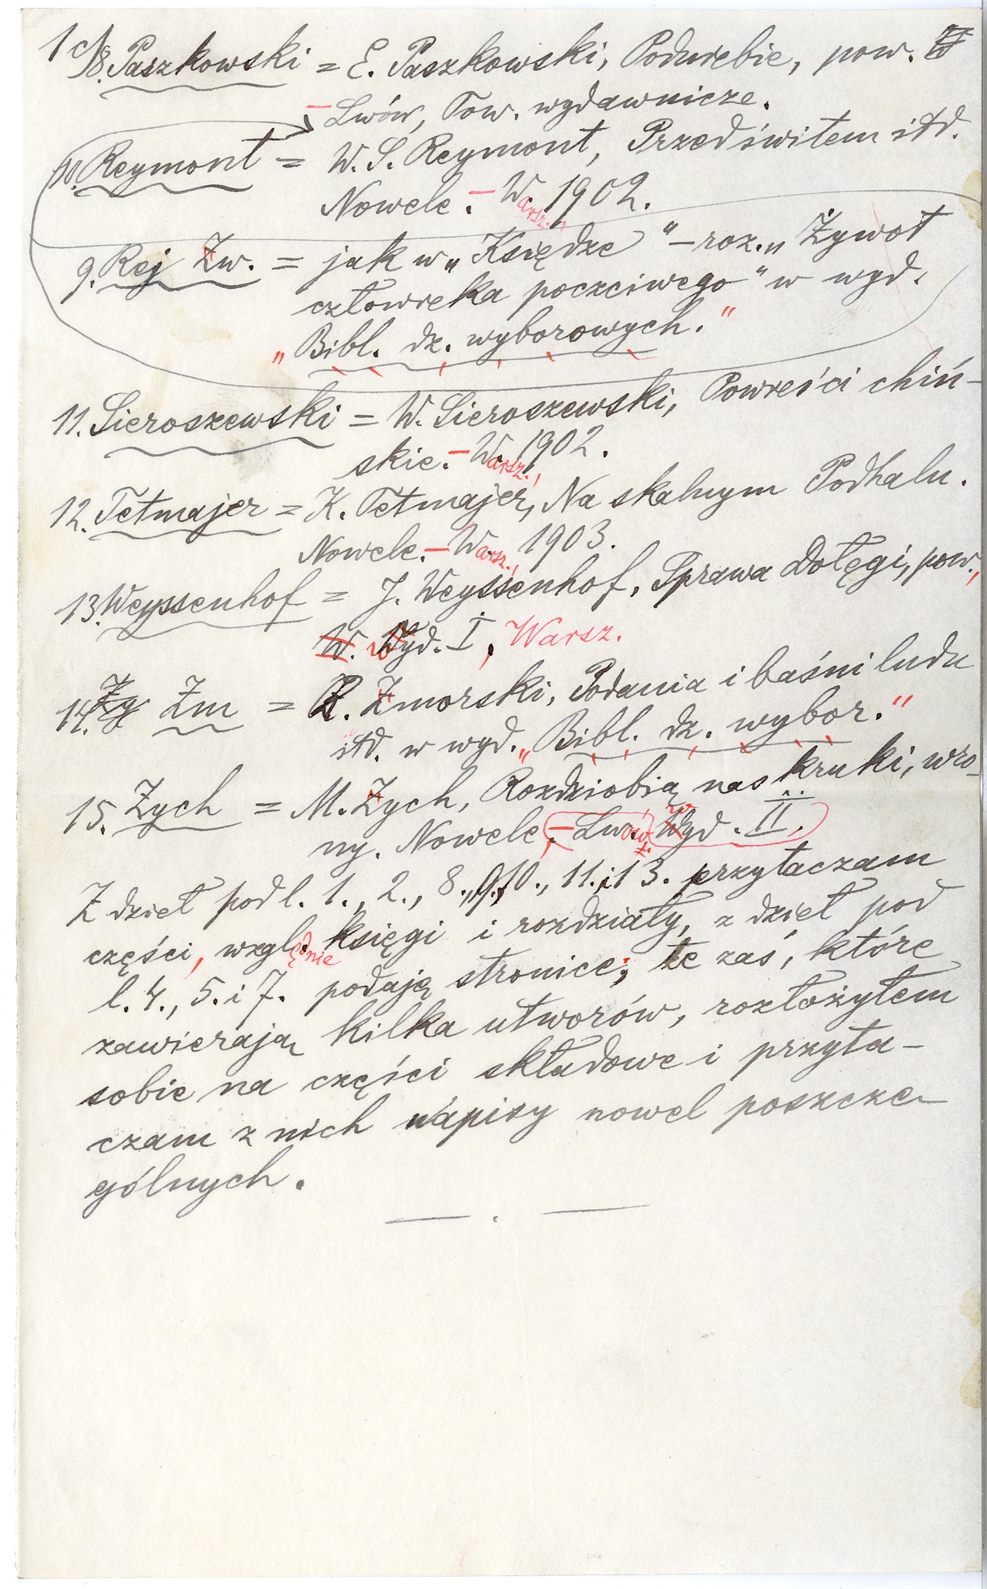 1c) 8. Paszkowski = E. Paszkowski, Podurebie, pow.
– Lwów, Tow. wydawnicze.
10. Reymont = W. S. Reymont, Przed świtem itd.
Nowele. – Warsz., 1902.
9. Rej Żw. = jak w „Księdze” – roz. „Żywot
człowieka poczciwego” w wyd.
„Bibl. dz. wyborowych.”
11. Sieroszewski = W. Sieroszewski, Powieści chiń-
skie. – Warsz., 1902.
12. Tetmajer = K. Tetmajer, Na skalnym Podhalu.
Nowele. – Warsz., 1903.
13. Weyssenhof = J. Weyssenhof, Sprawa Dołęgi, pow.,
W. wyd. I, Warsz.
14. Zm = R. Zmorski, Podania i baśni ludu
itd. w wyd. „Bibl. dz. wybor.”
15. Zych = M. Zych, Rozdziobią nas kruki, wro-
ny. Nowele. – Lwów, wyd. II.
Z dzieł pod l. 1., 2., 8., 9., 10., 11. i 13. przytaczam
części, względnie księgi i rozdziały, z dzieł pod
l. 4., 5. i 7. podaję stronice; te zaś, które
zawierają kilka utworów, rozłożyłem
sobie na części składowe i przyta-
czam z nich napisy nowel poszcze-
gólnych.